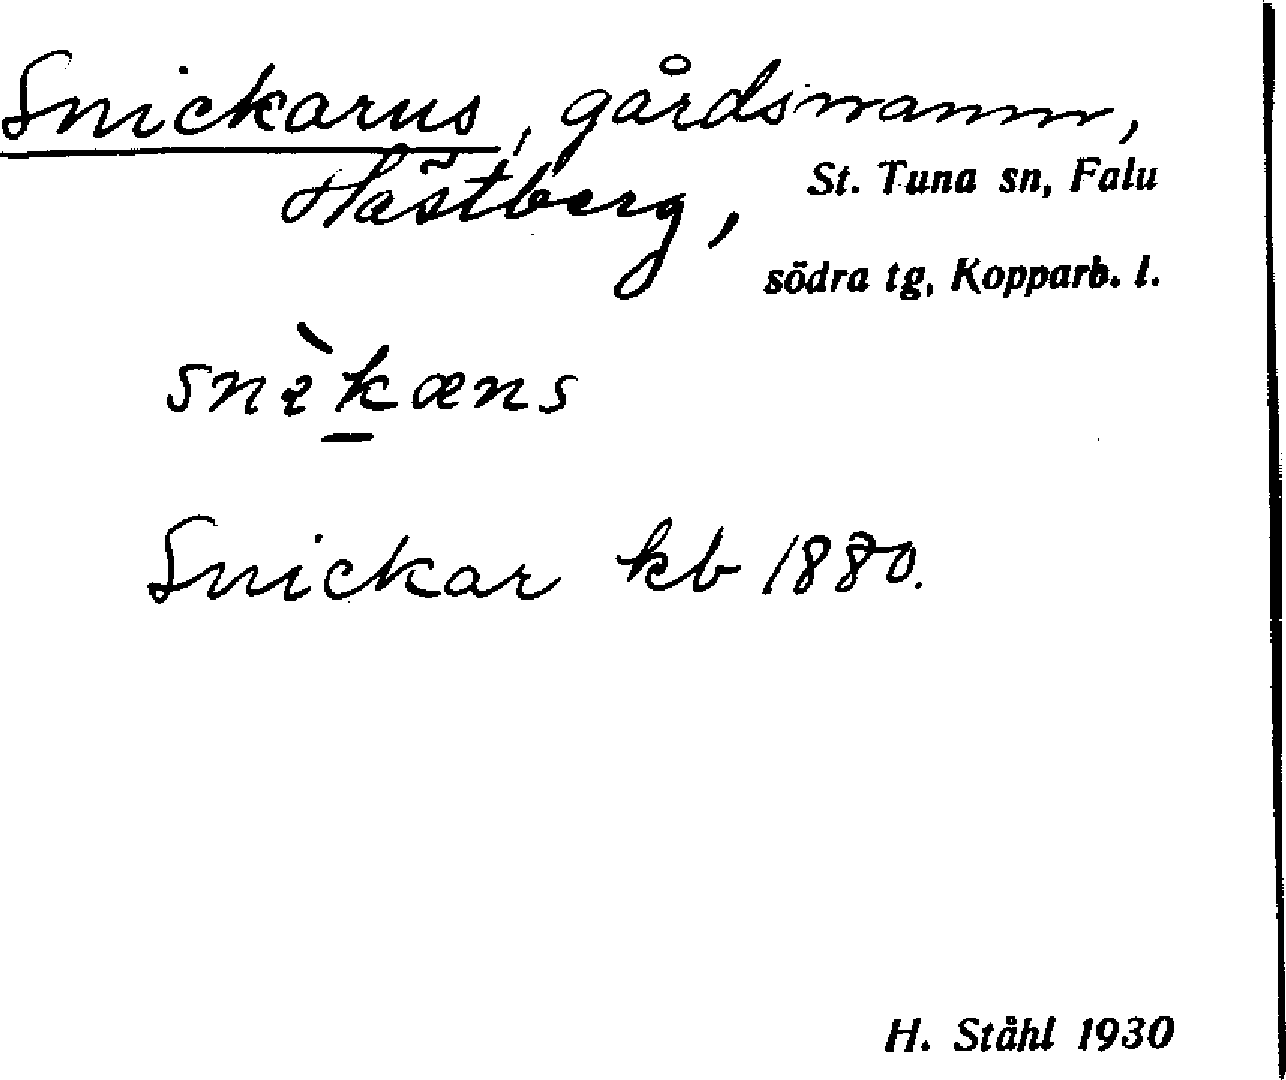 Snickarns, gårdsnamn,
Hästberg, St. Tuna sn, Falu
södra tg, Kopparb. l.
snɩ̀k̲æns
Snickar kb 1880.
H. Ståhl 1930